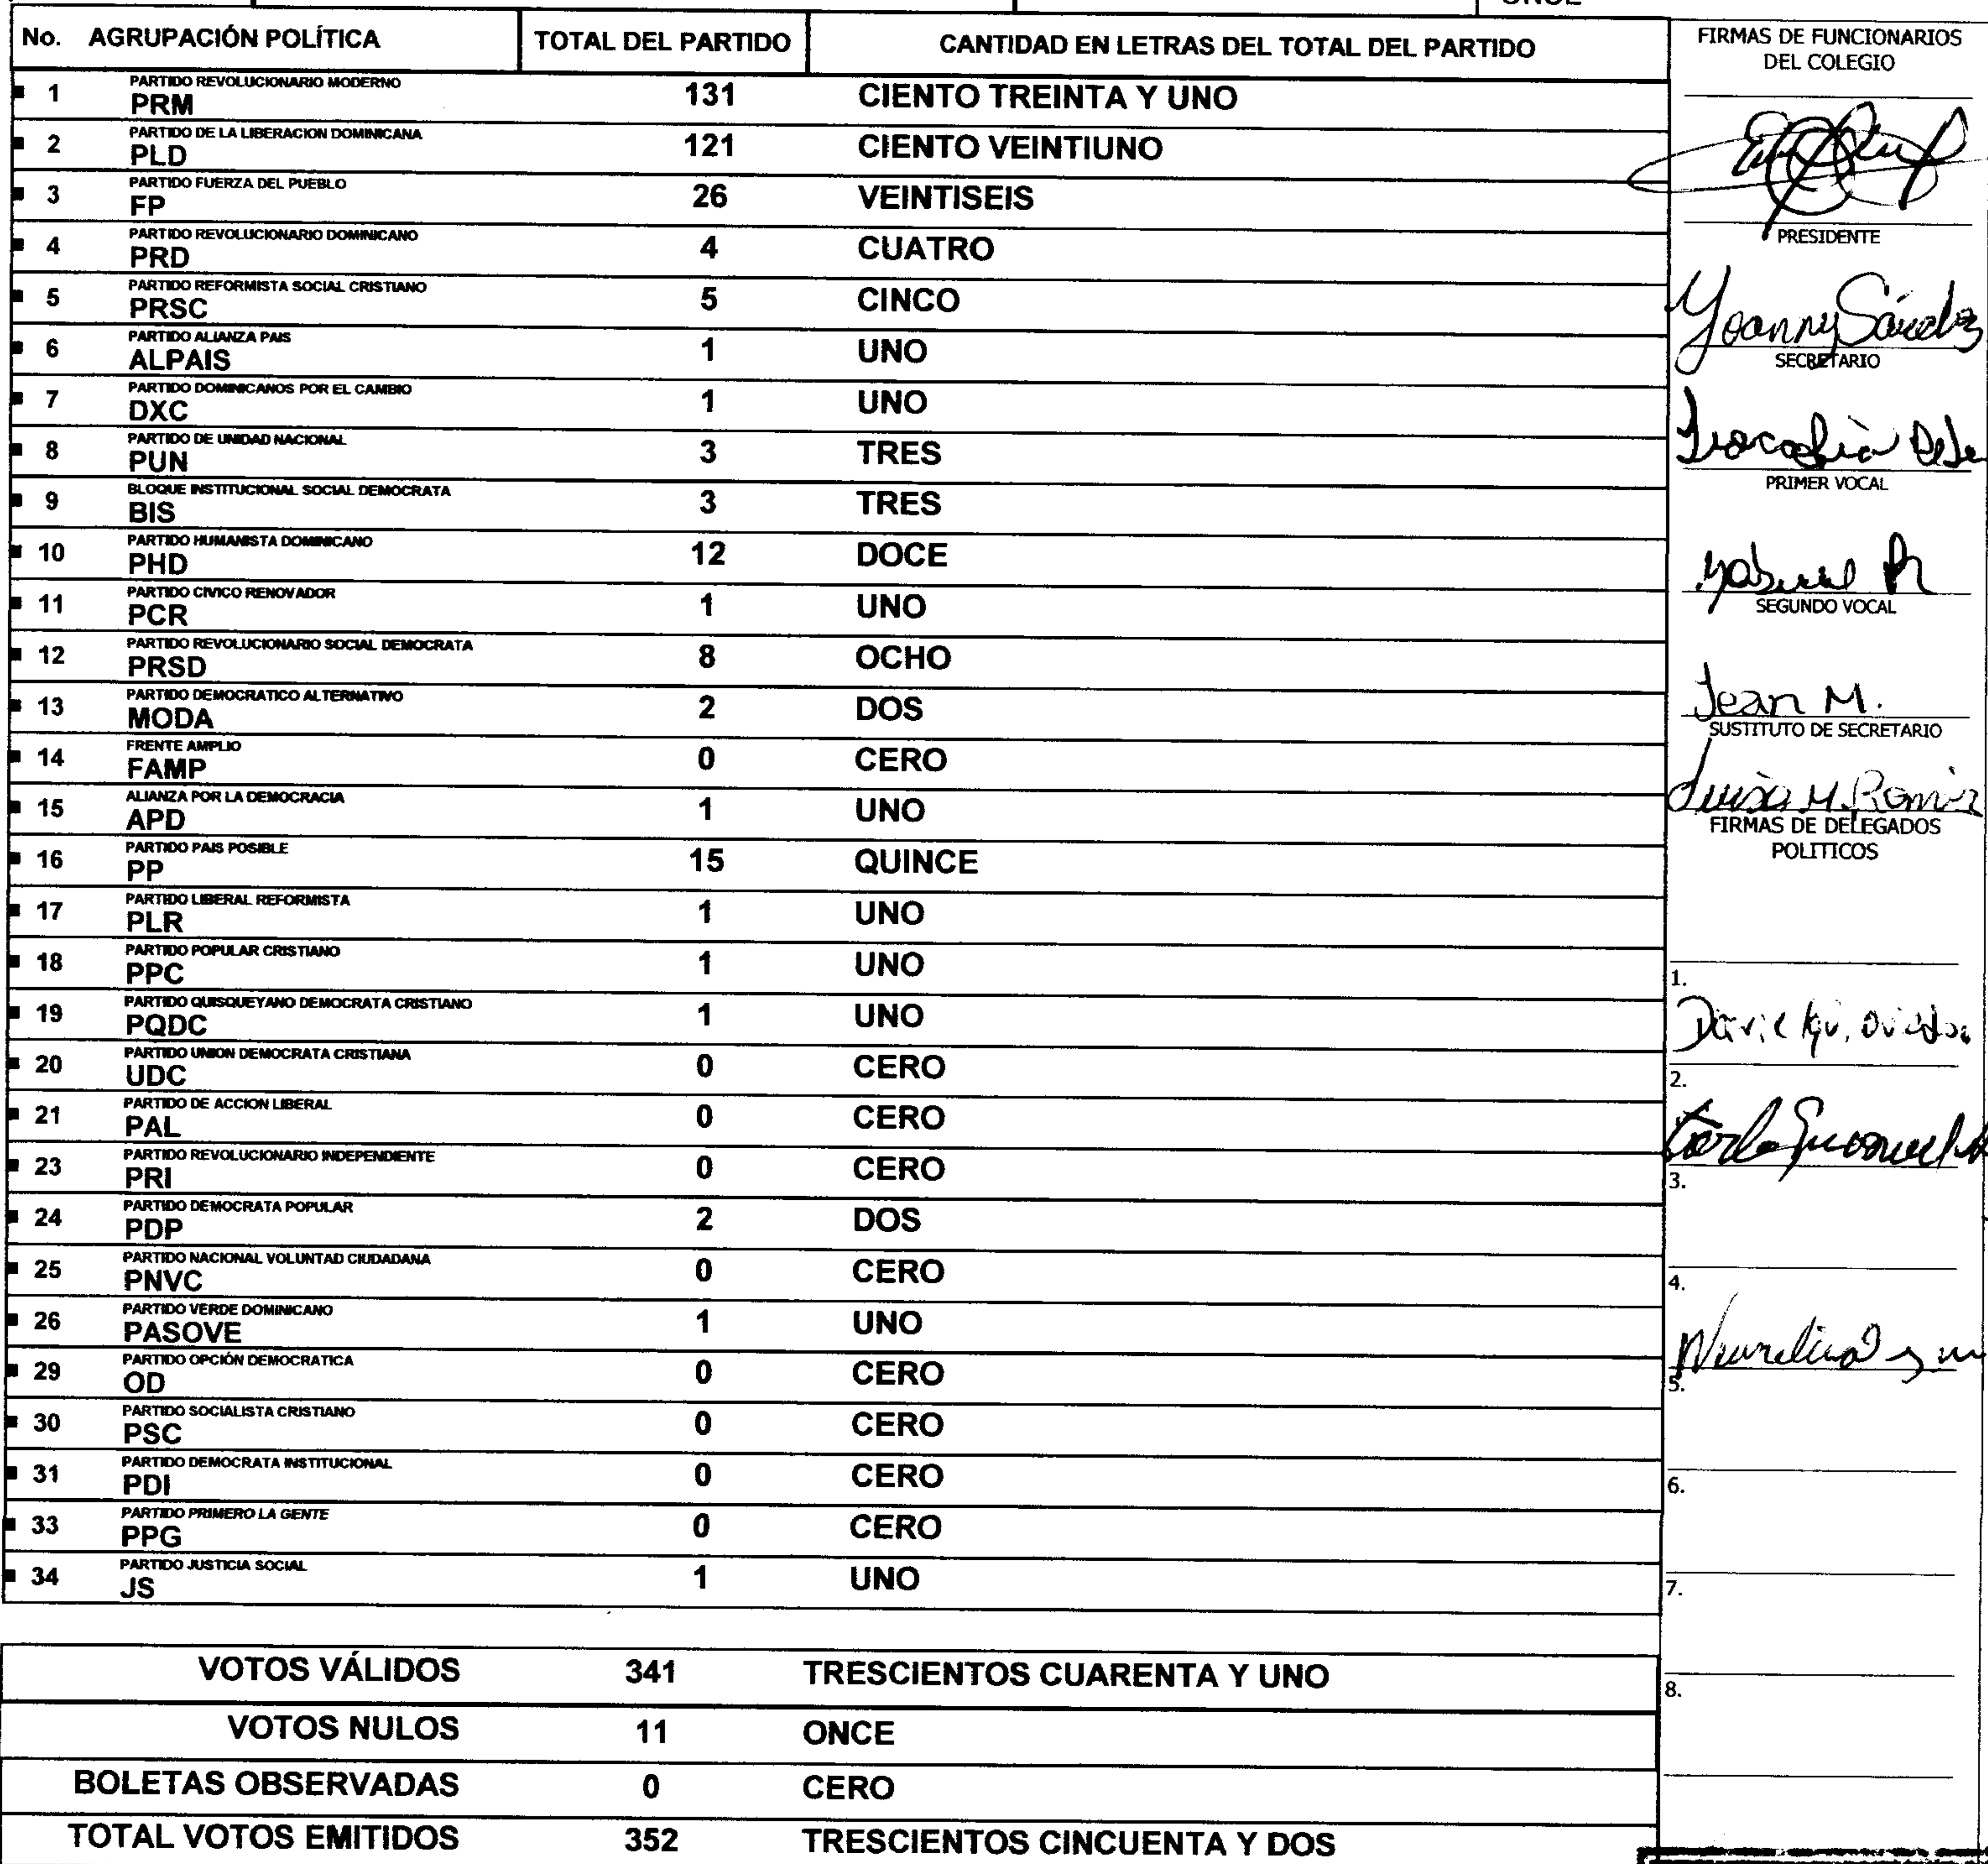 No. AGRUPACIÓN POLÍTICA TOTAL DEL PARTIDO CANTIDAD EN LETRAS DEL TOTAL DEL PARTIDO
PARTIDO REVOLUCIONARIO MODERNO
1 PRM 131 CIENTO TREINTA Y UNO
PARTIDO DE LA LIBERACION DOMINICANA
2 PLD 121 CIENTO VEINTIUNO
PARTIDO FUERZA DEL PUEBLO
3 FP 26 VEINTISEIS
PARTIDO REVOLUCIONARIO DOMINICANO
4 PRD 4 CUATRO
PARTIDO REFORMISTA SOCIAL CRISTIANO
5 PRSC 5 CINCO
PARTIDO ALIANZA PAIS
6 ALPAIS 1 UNO
PARTIDO DOMINICANOS POR EL CAMBIO
7 DXC 1 UNO
PARTIDO DE UNIDAD NACIONAL
8 PUN 3 TRES
BLOQUE INSTITUCIONAL SOCIAL DEMOCRATA
9 BIS 3 TRES
PARTIDO HUMANISTA DOMINICANO
10 PHD 12 DOCE
PARTIDO CIVICO RENOVADOR
11 PCR 1 UNO
PARTIDO REVOLUCIONARIO SOCIAL DEMOCRATA
12 PRSD 8 OCHO
PARTIDO DEMOCRATICO ALTERNATIVO
13 MODA 2 DOS
FRENTE AMPLIO
14 FAMP 0 CERO
ALIANZA POR LA DEMOCRACIA
15 APD 1 UNO
PARTIDO PAIS POSIBLE
16 PP 15 QUINCE
PARTIDO LIBERAL REFORMISTA
17 PLR 1 UNO
PARTIDO POPULAR CRISTIANO
18 PPC 1 UNO
PARTIDO QUISQUEYANO DEMOCRATA CRISTIANO
19 PQDC 1 UNO
PARTIDO UNION DEMOCRATA CRISTIANA
20 UDC 0 CERO
PARTIDO DE ACCION LIBERAL
21 PAL 0 CERO
PARTIDO REVOLUCIONARIO INDEPENDIENTE
23 PRI 0 CERO
PARTIDO DEMOCRATA POPULAR
24 PDP 2 DOS
PARTIDO NACIONAL VOLUNTAD CIUDADANA
25 PNVC 0 CERO
PARTIDO VERDE DOMINICANO
26 PASOVE 1 UNO
PARTIDO OPCIÓN DEMOCRATICA
29 OD 0 CERO
PARTIDO SOCIALISTA CRISTIANO
30 PSC 0 CERO
PARTIDO DEMOCRATA INSTITUCIONAL
31 PDI 0 CERO
PARTIDO PRIMERO LA GENTE
33 PPG 0 CERO
PARTIDO JUSTICIA SOCIAL
34 JS 1 UNO
VOTOS VÁLIDOS 341 TRESCIENTOS CUARENTA Y UNO
VOTOS NULOS 11 ONCE
BOLETAS OBSERVADAS 0 CERO
TOTAL VOTOS EMITIDOS 352 TRESCIENTOS CINCUENTA Y DOS
FIRMAS DE FUNCIONARIOS
DEL COLEGIO
PRESIDENTE
Yoanny
SECRETARIO
PRIMER VOCAL
SEGUNDO VOCAL
Jean M.
SUSTITUTO DE SECRETARIO
Luisa M.
FIRMAS DE DELEGADOS
POLITICOS
1.
2.
3.
4.
5.
6.
7.
8.